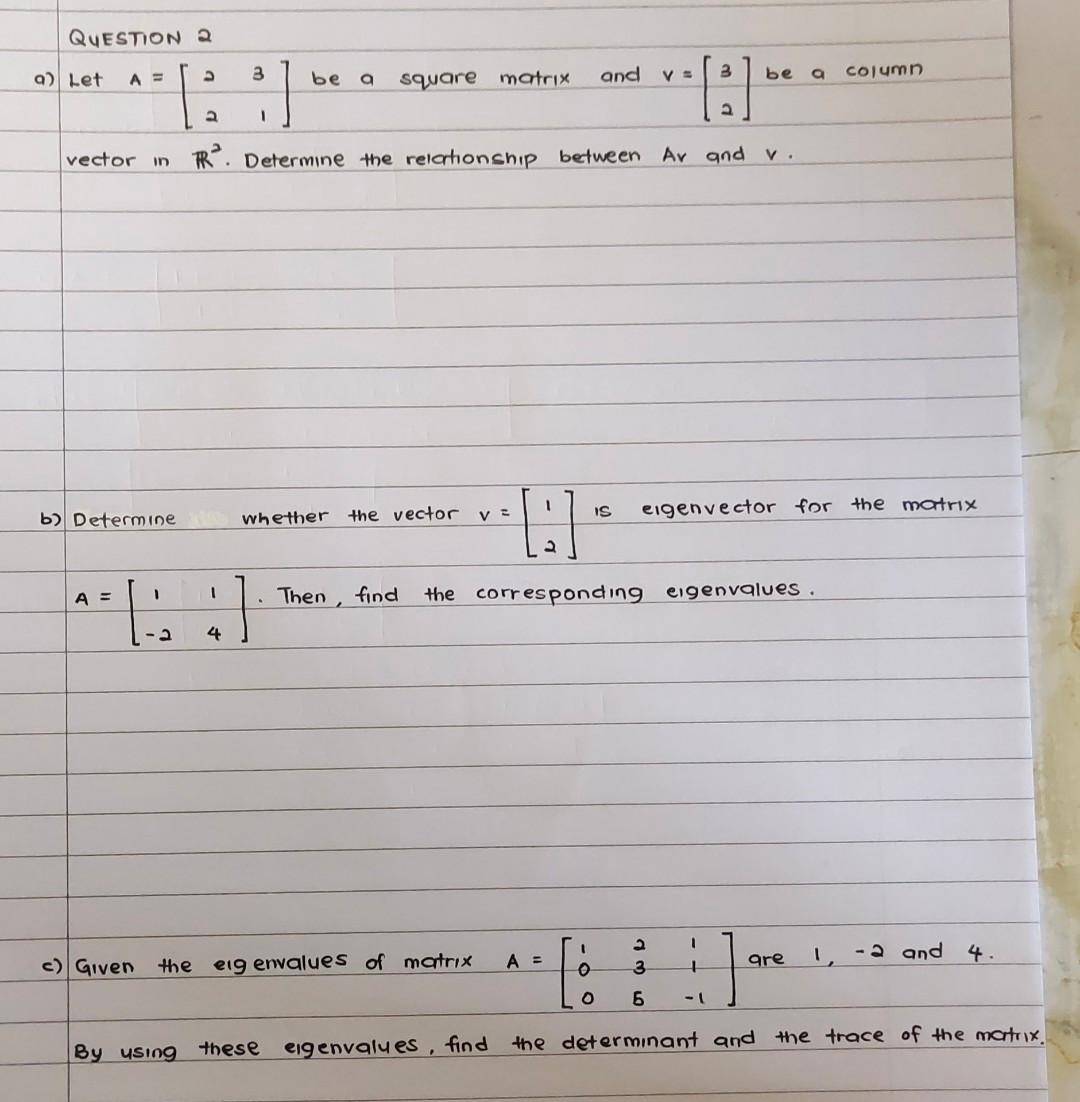 QUESTION 2
a) Let A = [ 2 3 ] be a square matrix and v = [ 3 ] be a column
2 1 2
vector in ℝ². Determine the relationship between Av and v.
b) Determine whether the vector v = [ 1 ] is eigenvector for the matrix
2
A = [ 1 1 ]. Then, find the corresponding eigenvalues.
-2 4
c) Given the eigenvalues of matrix A = [ 1 2 1 ] are 1, -2 and 4.
0 3 1
0 5 -1
By using these eigenvalues, find the determinant and the trace of the matrix.